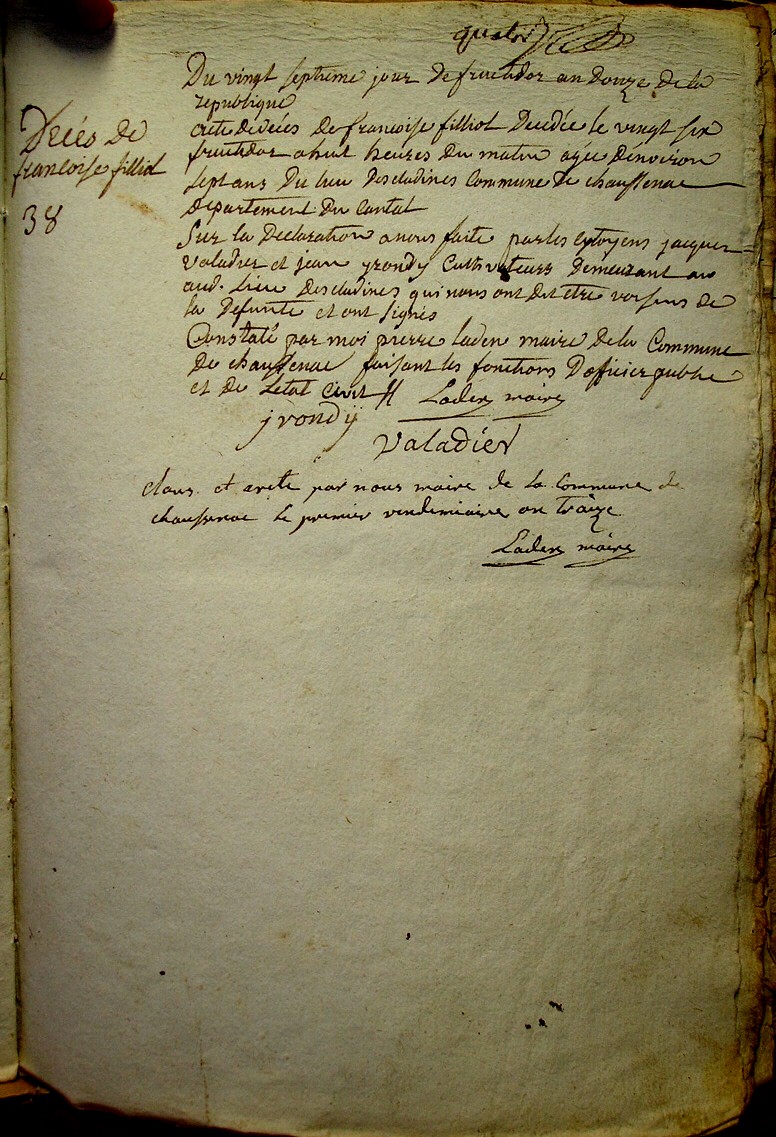 quatre
Du vingt septieme jour de fructidor an douze de la
republique
Décés de
francoise filliol
38
acte de décées de francoise filliol Decedée le vingt six
fructidor a huit heures du matin agée denviron
sept ans Du lieu Descladines Commune de chaussenac
departement Du Cantal
Sur la Declaration a nous faite par les citoyens jacques
Valadier et jean yrondy Cultivateurs Demeurant au
aud. Lieu Descladines qui nous ont dit etre voisins de
la Defunte et ont signés
Constaté par moi pierre laden maire de la Commune
de chaussenac faisant les fonctions Dofficier public
et de Letat Civil // Laden maire
yrondy
Valadier
clous et areté par nous maire de la Commune de
chaussenac le premier vendemiaire an traize
Laden maire